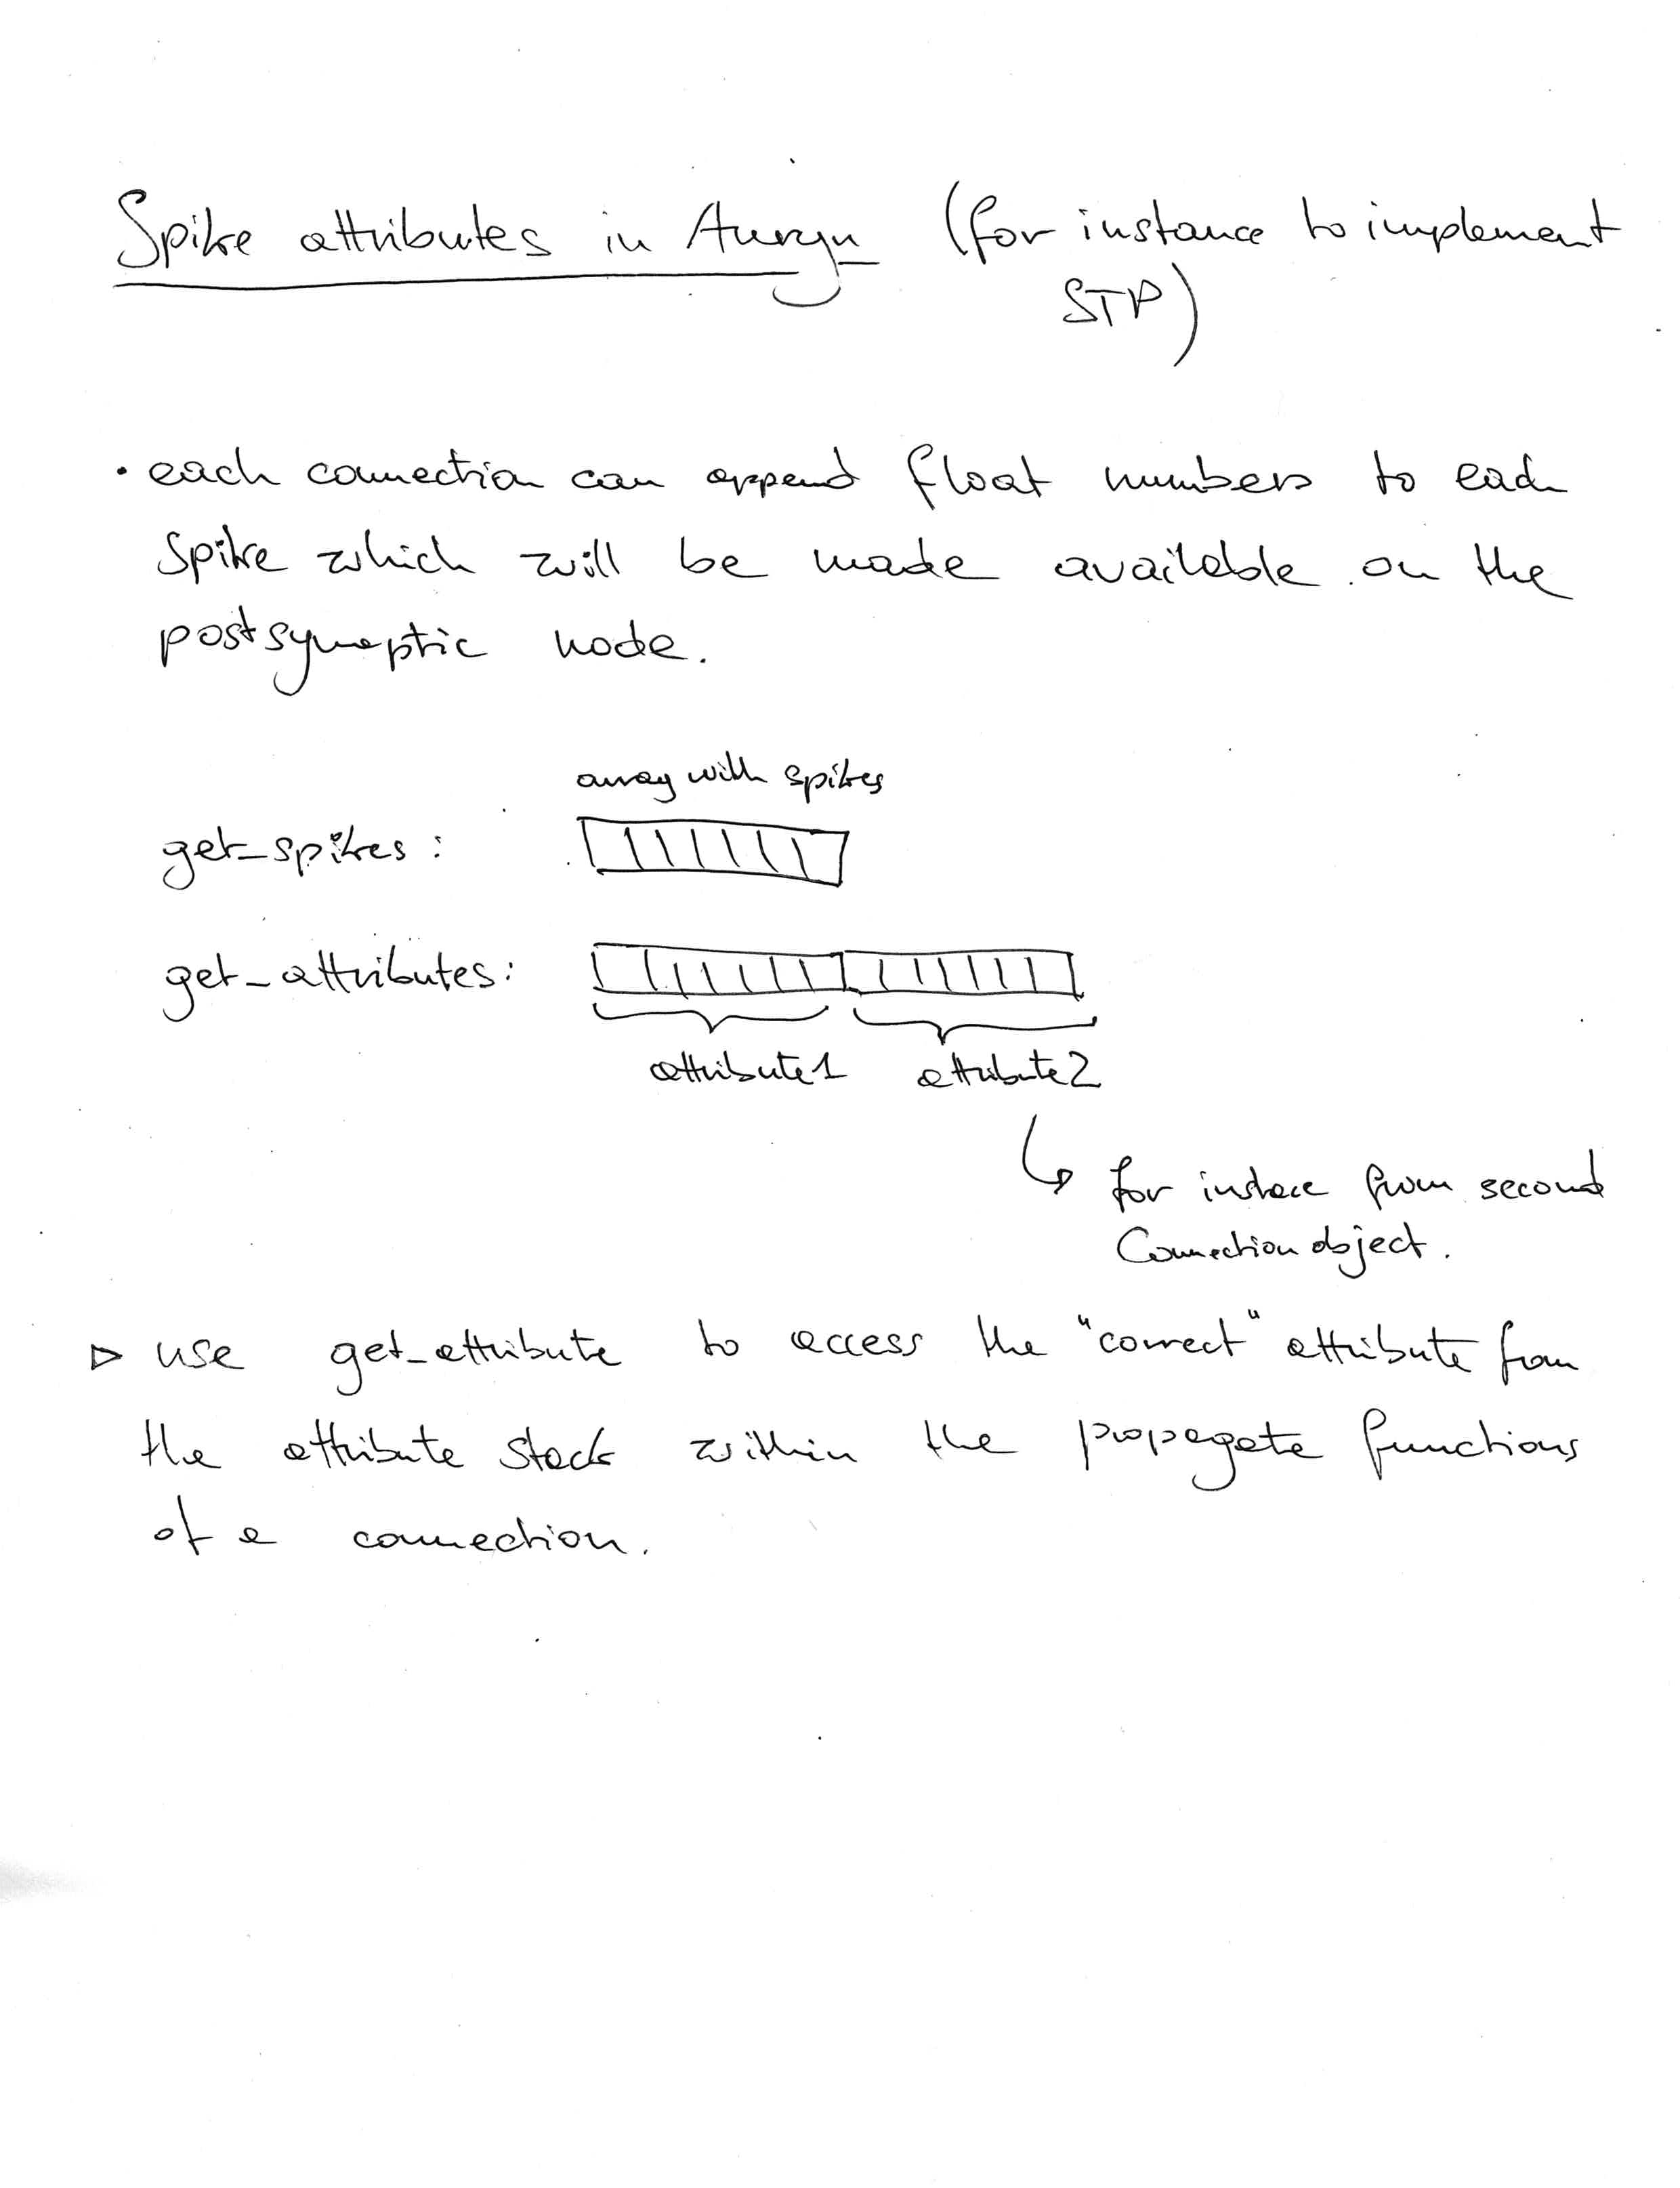 Spike attributes in Auryn (for instance to implement
STP)
• each connection can append float numbers to each
spike which will be made available on the
postsynaptic node.
array with spikes
get_spikes:
get_attributes:
attribute1 attribute2
for instace from second
Connection object.
▷ use get_attribute to access the "correct" attribute from
the attribute stack within the propagate functions
of a connection.